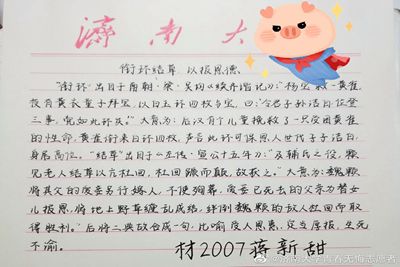 濟南大
衔环结草,以报恩德
"衔环"出自于南朝·梁·吴均《续齐谐记》:"杨宝救一黄雀,
夜有黄衣童子拜宝,以白玉四枚与宝,曰:'令君子孙洁白,位登
三事,宛如此环矣。'"大意为:后汉有个儿童挽救了一只受困黄雀
的性命,黄雀衔来白环四枚,声言此环可保恩人世代子子洁白,
身居高位。"结草"出自于《左传·宣公十五年》:"及辅氏之役,颗
见老人结草以亢杜回,杜回踬而颠,故获之。"大意为:魏颗
将其父的爱妾另行嫁人,不使殉葬,爱妾已死去的父亲为替女
儿报恩,将地上野草缠乱成结,绊倒魏颗的敌人杜回而取
得胜利。"后将二典故合成一句,比喻受人恩惠,定当厚报,生死
不渝。
材2007蒋新甜
@济南大学青春无悔志愿者